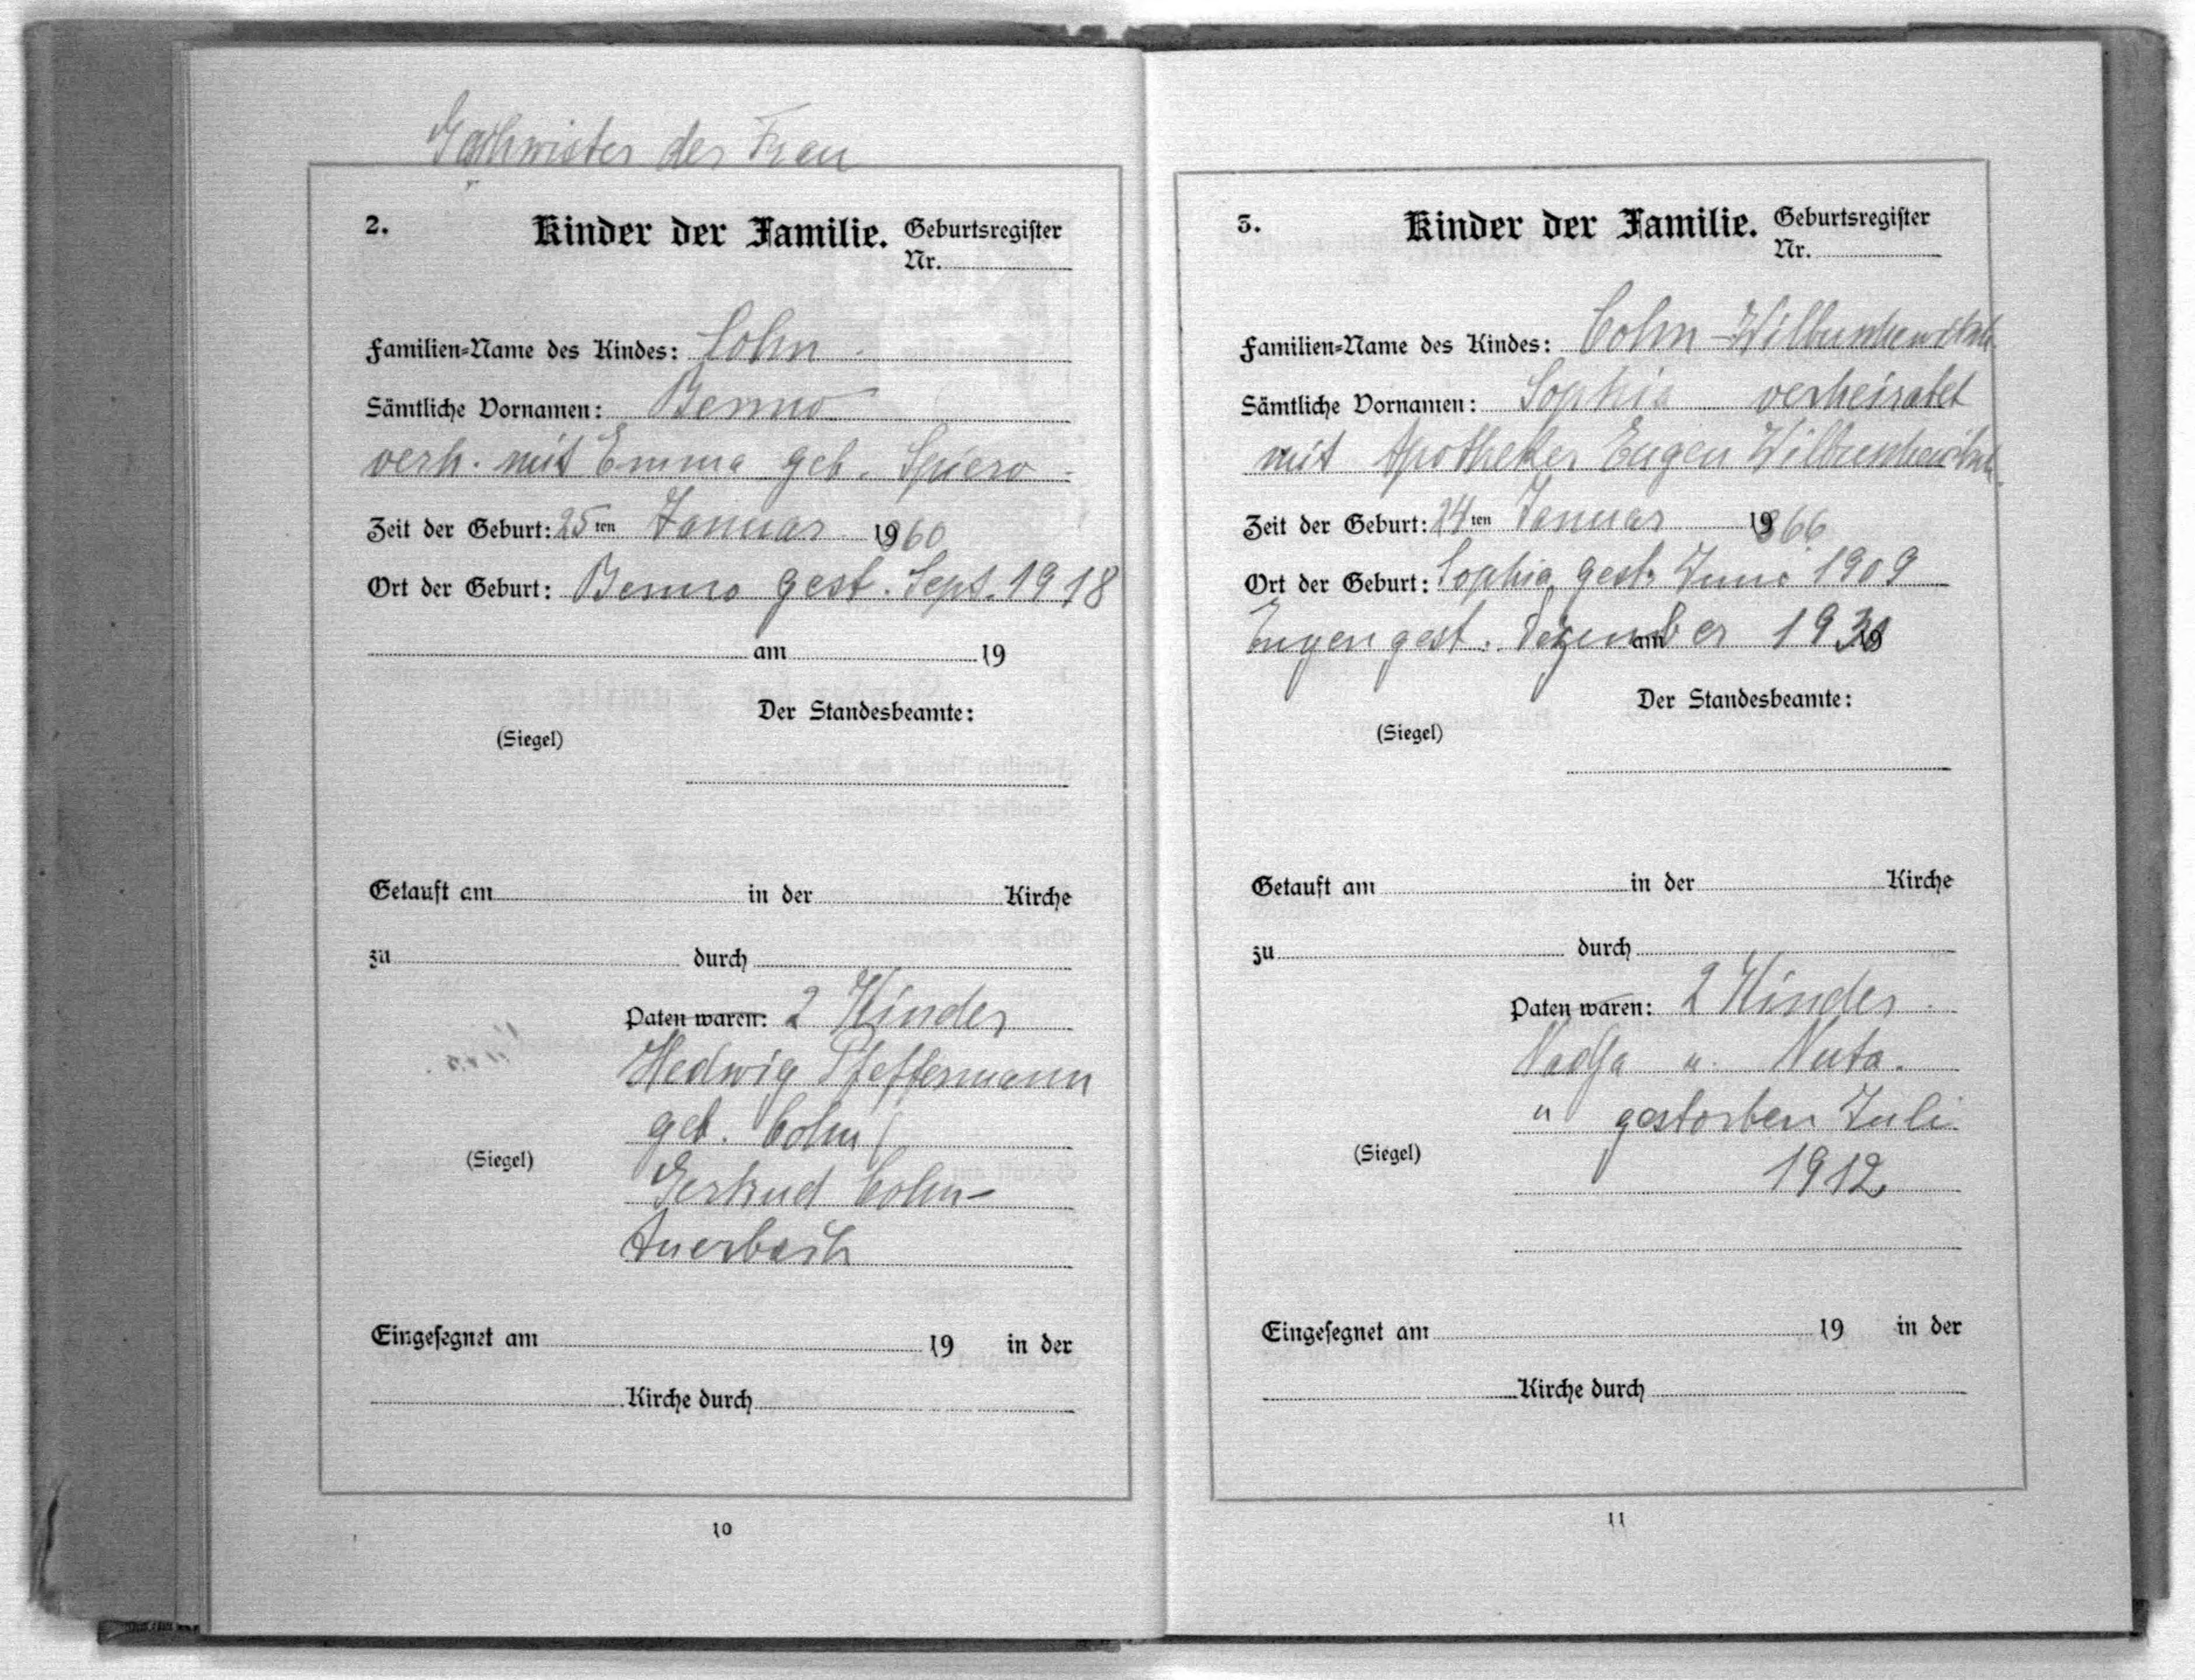 Geschwister der Frau
2. Kinder der Familie. Geburtsregister
Nr.
Familien-Name des Kindes: Cohn
Sämtliche Vornamen: Benno
verh. mit Emma geb. Spiero
Zeit der Geburt: 25ten Januar 1860
Ort der Geburt: Benno gest. Sept. 1918
am 19
Der Standesbeamte:
(Siegel)
Getauft am in der Kirche
zu durch
Paten waren: 2 Kinder
Hedwig Pfeffermann
geb. Cohn
(Siegel)
Gertrud Cohn-
Auerbach
Eingesegnet am 19 in der
Kirche durch
10
3. Kinder der Familie. Geburtsregister
Nr.
Familien-Name des Kindes: Cohn-
Sämtliche Vornamen: Sophia verheiratet
mit Apotheker Eugen
Zeit der Geburt: 24ten Januar 1866
Ort der Geburt: Sophia gest. Juni 1909
Eugen gest. Dezember am 19
Der Standesbeamte:
(Siegel)
Getauft am in der Kirche
zu durch
Paten waren: 2 Kinder
Nadja u. Nuta.
" gestorben Juli
(Siegel)
1912
Eingesegnet am 19 in der
Kirche durch
11